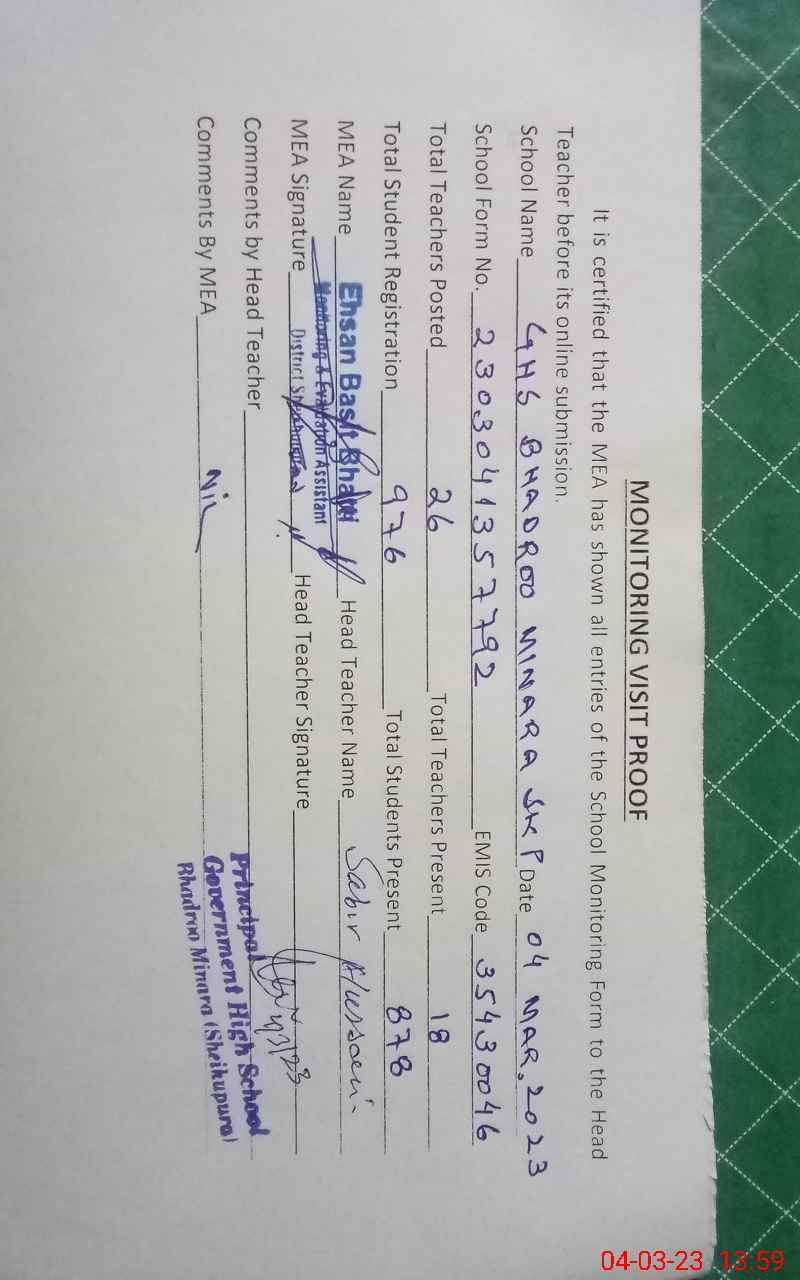 MONITORING VISIT PROOF
It is certified that the MEA has shown all entries of the School Monitoring Form to the Head
Teacher before its online submission.
School Name GHS BHADROO MINARA SKP Date 04 MAR, 2023
School Form No. 230304135 7792 EMIS Code 35430046
Total Teachers Posted 26 Total Teachers Present 18
Total Student Registration 976 Total Students Present 878
MEA Name Ehsan Basit Bhatti Head Teacher Name Sabir Hussain
Monitoring & Evaluation Assistant
MEA Signature District Head Teacher Signature
4/3/23
Comments by Head Teacher
Principal
Government High School
Bhadroo Minara (Sheikupura)
Comments By MEA Nil
04-03-23 13:59